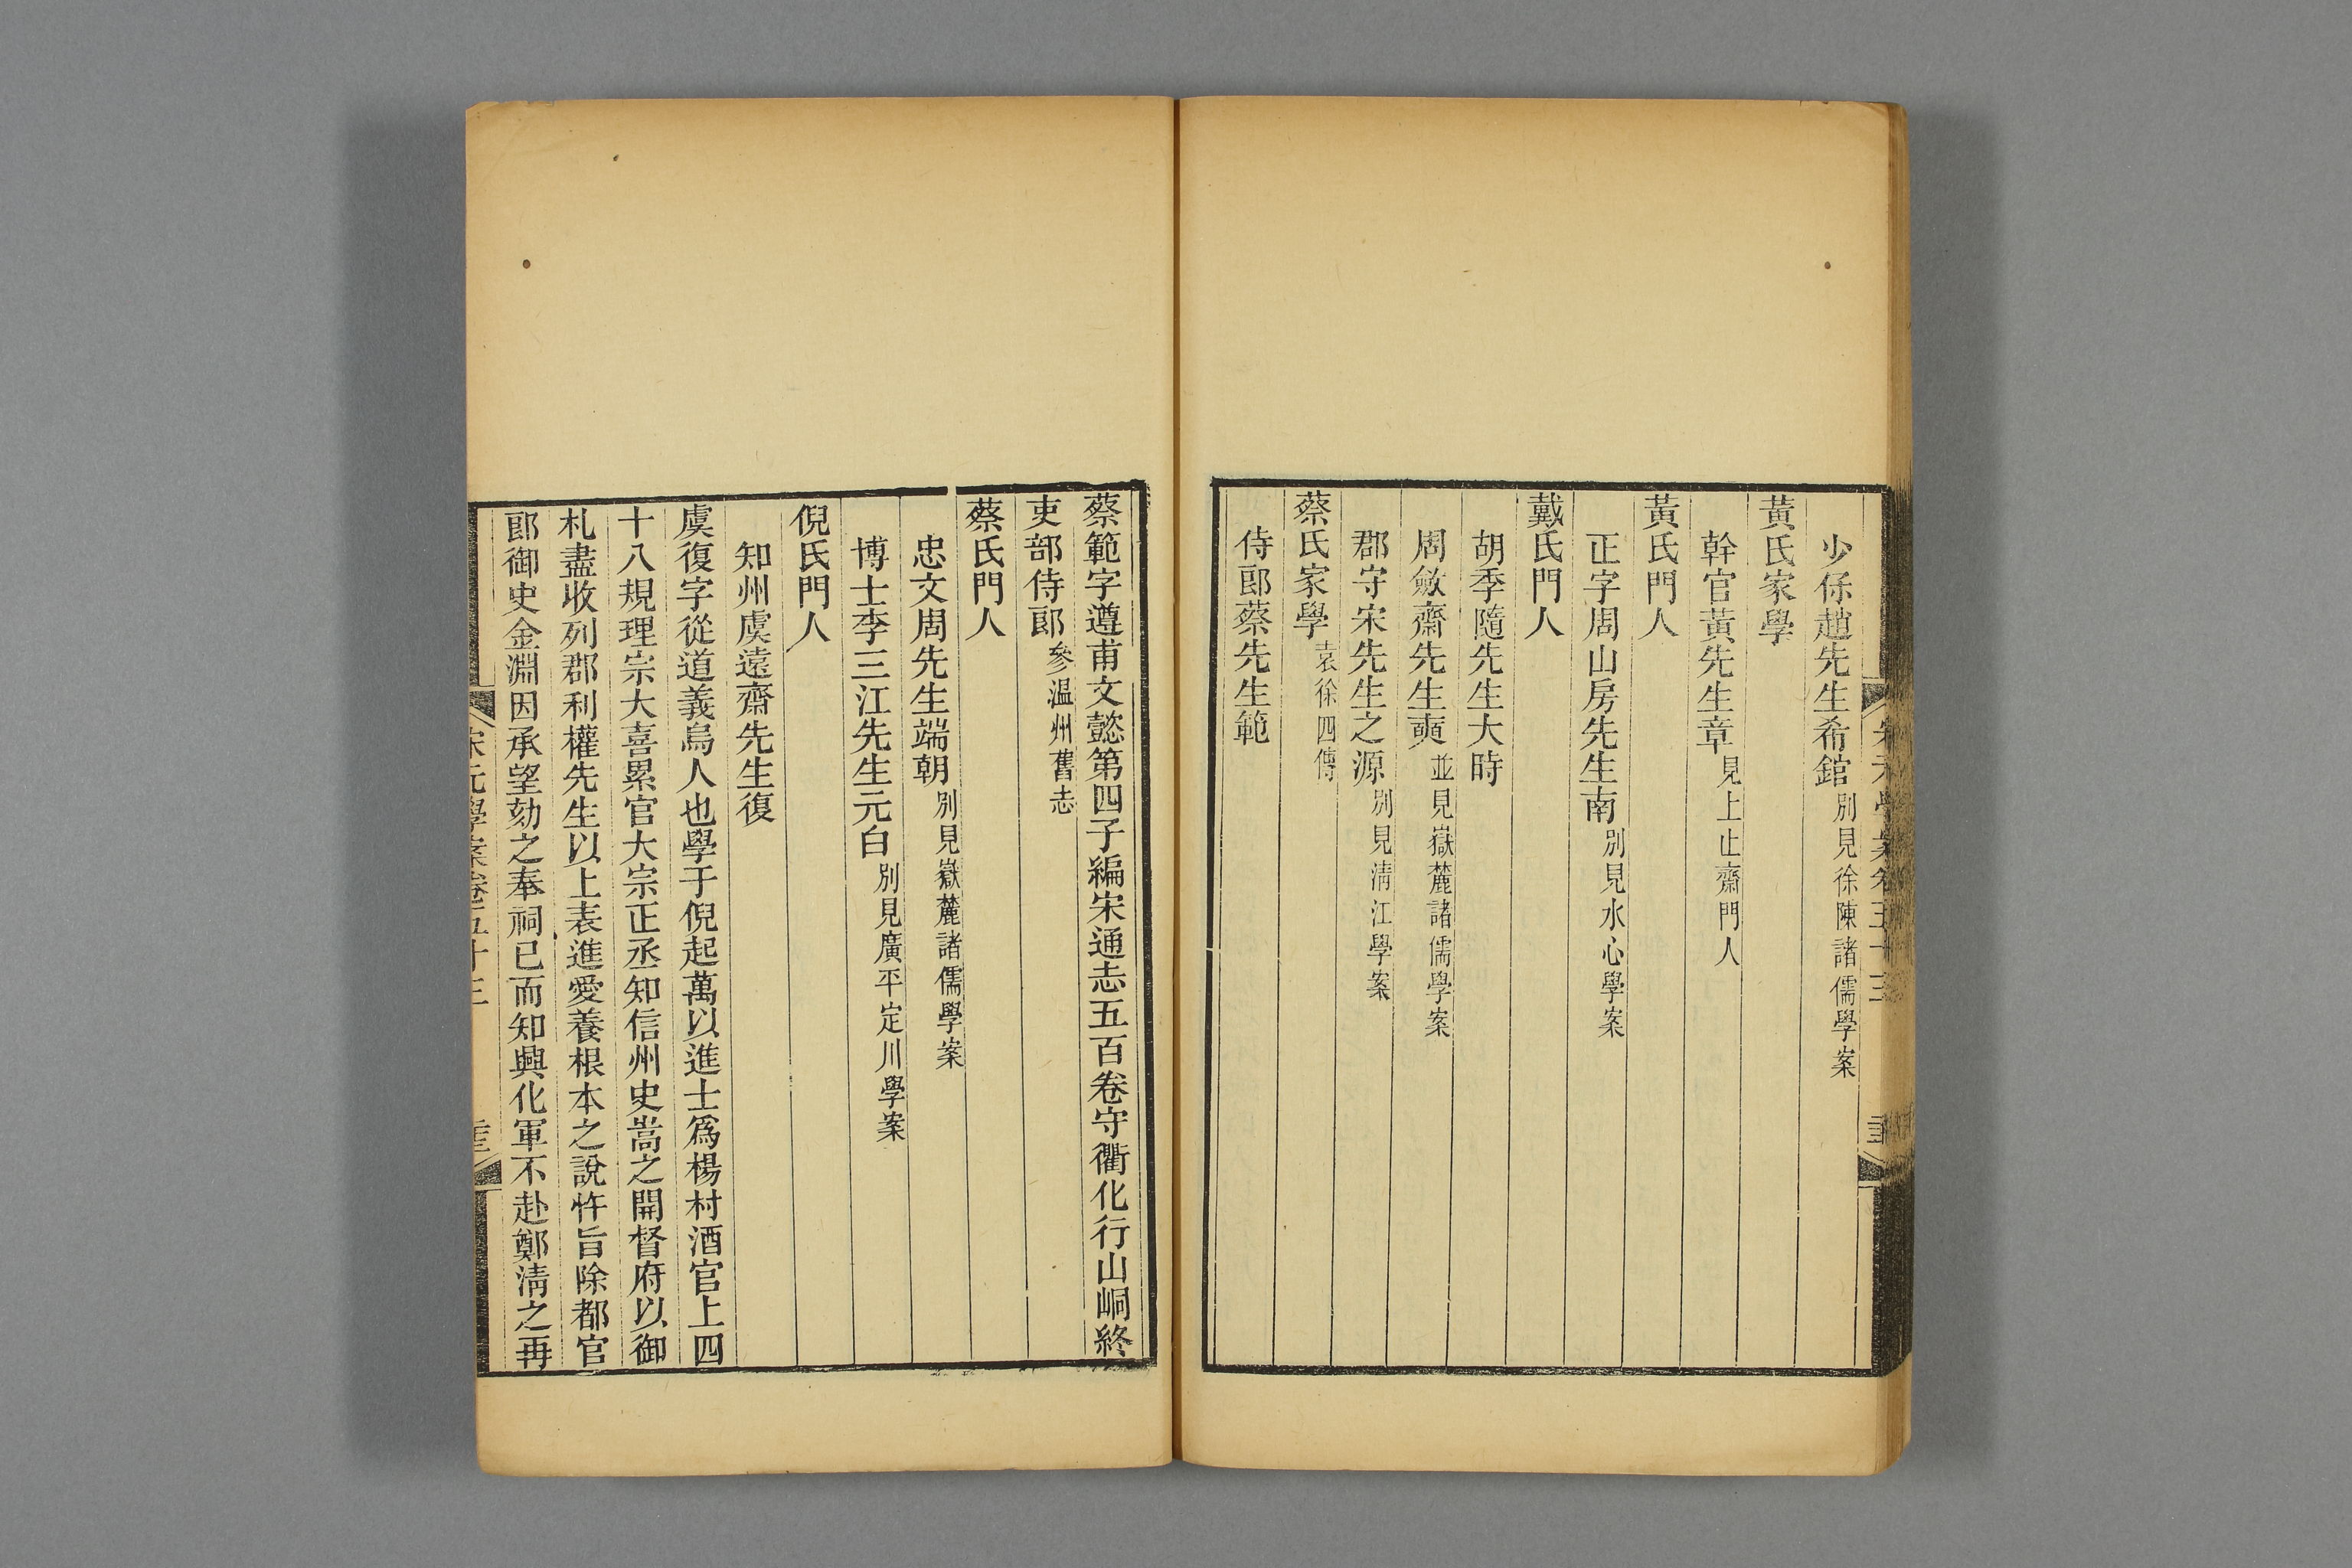 少保趙先生希錧別見徐陳諸儒學案
黃氏家學
幹官黃先生章見上止齋門人
黃氏門人
正字周山房先生南別見水心學案
戴氏門人
胡季隨先生大時
周斂齋先生奭並見嶽麓諸儒學案
郡守宋先生之源別見淸江學案
蔡氏家學袁徐四傳
侍郎蔡先生範
蔡範字遵甫文懿第四子編宋通志五百卷守衢化行山峒終
吏部侍郎參溫州舊志
蔡氏門人
忠文周先生端朝別見嶽麓諸儒學案
博士李三江先生元白別見廣平定川學案
倪氏門人
知州虞遠齋先生復
虞復字從道義烏人也學于倪起萬以進士爲楊村酒官上四
十八規理宗大喜累官大宗正丞知信州史嵩之開督府以御
札盡收列郡利權先生以上表進愛養根本之說忤旨除都官
郎御史金淵因承望劾之奉祠已而知興化軍不赴鄭淸之再
宋元學案卷五十三